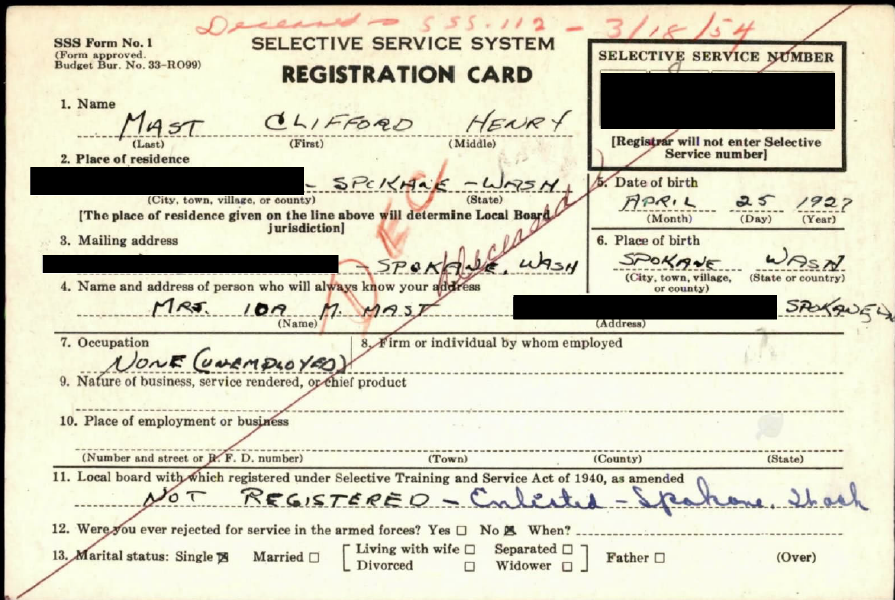 Deceased - SSS-112 - 3/18/54
SSS Form No. 1
(Form approved.
Budget Bur. No. 33-RO99)
SELECTIVE SERVICE SYSTEM
REGISTRATION CARD
SELECTIVE SERVICE NUMBER
[Registrar will not enter Selective
Service number]
1. Name
MAST CLIFFORD HENRY
(Last) (First) (Middle)
2. Place of residence
- SPOKANE - WASH
(City, town, village, or county) (State)
[The place of residence given on the line above will determine Local Board
jurisdiction]
DEC
deceased
5. Date of birth
APRIL 25 1927
(Month) (Day) (Year)
3. Mailing address
- SPOKANE, WASH
6. Place of birth
SPOKANE WASH
(City, town, village, (State or country)
or county)
4. Name and address of person who will always know your address
MRS. IDA M. MAST SPOKANE
(Name) (Address)
7. Occupation
NONE (UNEMPLOYED)
8. Firm or individual by whom employed
9. Nature of business, service rendered, or chief product
10. Place of employment or business
(Number and street or R. F. D. number) (Town) (County) (State)
11. Local board with which registered under Selective Training and Service Act of 1940, as amended
NOT REGISTERED - Enlisted - Spokane, Wash
12. Were you ever rejected for service in the armed forces? Yes ☐ No ☒ When?
13. Marital status: Single ☒ Married ☐ [ Living with wife ☐ Separated ☐ ] Father ☐ (Over)
[ Divorced ☐ Widower ☐ ]